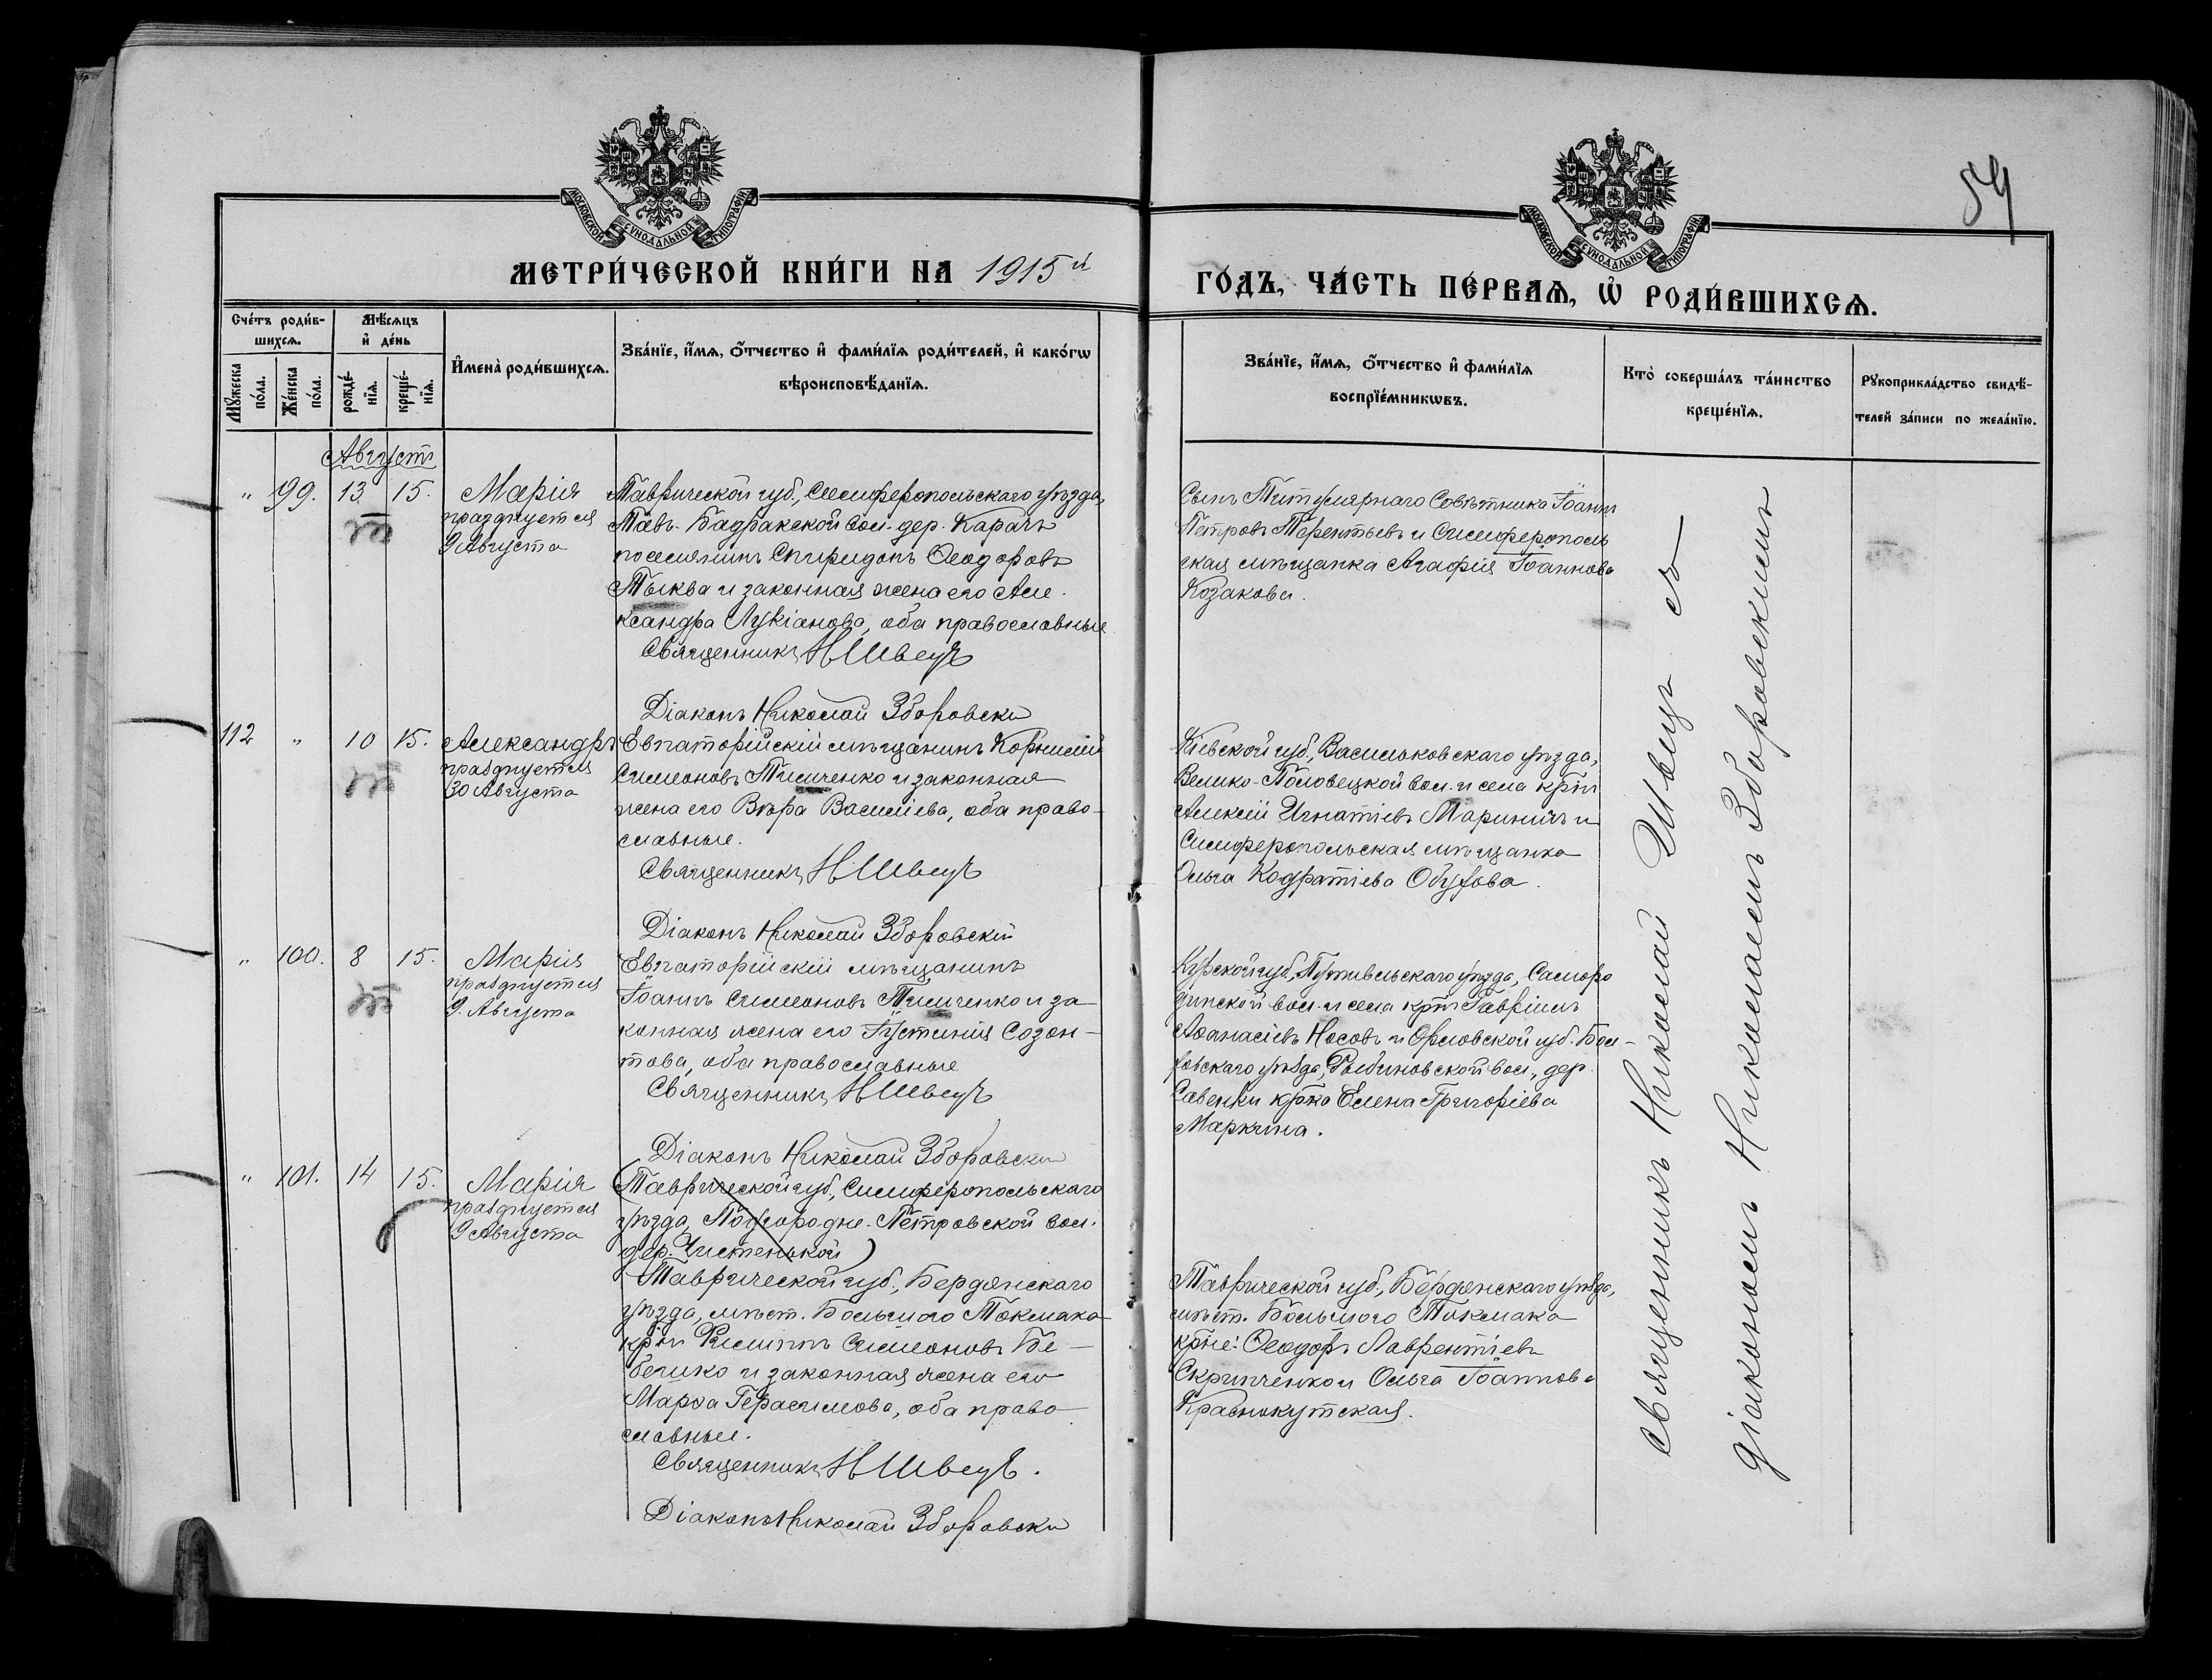 54
МОСКОВСКОЙ СУНОДАЛЬНОЙ ТИПОГРАФІИ
МОСКОВСКОЙ СУНОДАЛЬНОЙ ТИПОГРАФІИ
МЕТРИ́ЧЕСКОЙ КНИ́ГИ НА 1915й
ГО́ДЪ, ЧА́СТЬ ПЕ́РВАѦ, Ѡ҆ РОДИ́ВШИХСѦ.
Сче́тъ роди́в-
шихсѧ.
Мѣ́сѧцъ
и҆ де́нь
Мꙋ́жеска по́ла.
Же́нска по́ла.
рожде́-
нїѧ.
креще́-
нїѧ.
И҆мена̀ роди́вшихсѧ.
Зва́нїе, и҆́мѧ, ѻ҆́тчество и҆ фами́лїѧ роди́телей, и҆ како́гѡ
вѣроисповѣ́данїѧ.
Зва́нїе, и҆́мѧ, ѻ҆́тчество и҆ фами́лїѧ
воспрїе́мникѡвъ.
Кто̀ соверша́лъ та́инство
креще́нїѧ.
Рꙋкоприкла́дство свидѣ́-
телей за́писи по жела́нїю.
Августъ
" 99. 13. 15. Марія
празднуется
9 Августа
Таврической губ., Симферопольскаго уѣзда,
Тавъ-Бадракской вол. дер. Карачъ
поселянинъ Спиридонъ Ѳеодоровъ
Тыква и законная жена его Але-
ксандра Лукіанова, оба православные
Священникъ Н Швецъ
Діаконъ Николай Зборовски
Сынъ Титулярнаго Совѣтника Іоаннъ
Петровъ Терентьевъ и Симферополь
ская мѣщанка Агафія Іоаннова
Козакова.
112 " 10 15. Александръ
празднуется
30 Августа
Евпаторійскій мѣщанинъ Корнилій
Симеоновъ Тимченко и законная
жена его Вѣра Василіева, оба право-
славные.
Священникъ Н Швецъ
Діаконъ Николай Зборовскій
Кіевской губ., Васильковскаго уѣзда,
Велико-Половецкой вол. и села крнъ
Алексій Игнатіевъ Мариничъ и
Симферопольская мѣщанка
Ольга Кодратіева Обухова.
" 100. 8 15. Марія
празднуется
9. Августа
Евпаторійскій мѣщанинъ
Іоаннъ Симеоновъ Тимченко и за-
конная жена его Іустинія Созон-
това, оба православные
Священникъ Н Швецъ
Діаконъ Николай Зборовски
Курской губ., Путивльскаго уѣзда,
динской вол. и села крнъ Гавріилъ
Аѳанасіевъ Носовъ и Орловской губ. Бол-
ховскаго уѣзда, вол., дер.
Савенки крнка Елена Григоріева
Маркина.
" 101. 14 15. Марія
празднуется
9 Августа
(Таврической губ., Симферопольскаго
уѣзда, Подгородне-Петровской вол.
дер. Чистенькой)
Таврической губ., Бердянскаго
уѣзда, мѣст. Большого Токмака
крнъ Филиппъ Симеоновъ Бе-
бешко и законная жена его
Марѳа Герасимова, оба право
славные.
Священникъ Н Швецъ.
Діаконъ Николай Зборовски
Таврической губ., Бердянскаго уѣзда,
мѣст. Большого Токмака
крне: Ѳеодоръ Лаврентіевъ
Скрипченко и Ольга Іоаннова
Краснокутская.
Священникъ Николай Швецъ съ
діакономъ Николаемъ Зборовскимъ